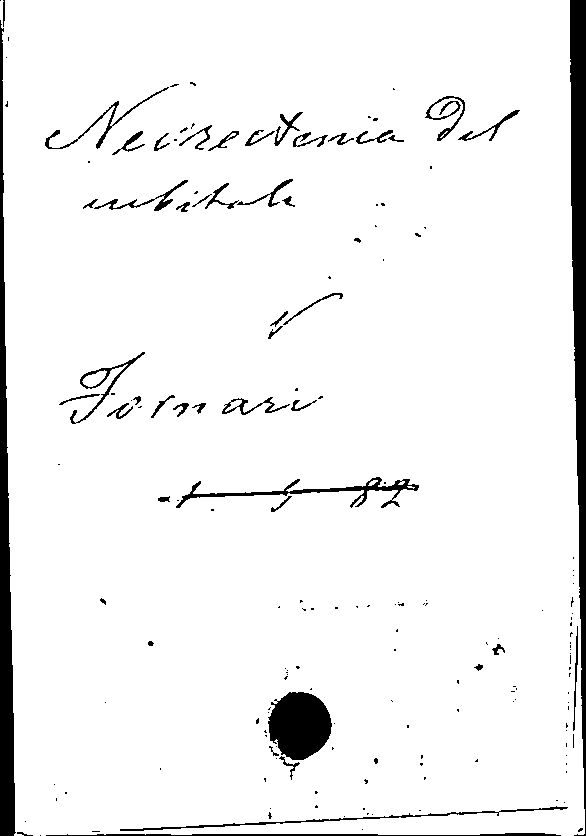 Nevrectenia Del
cubitale
V
Fornari
1 5 82